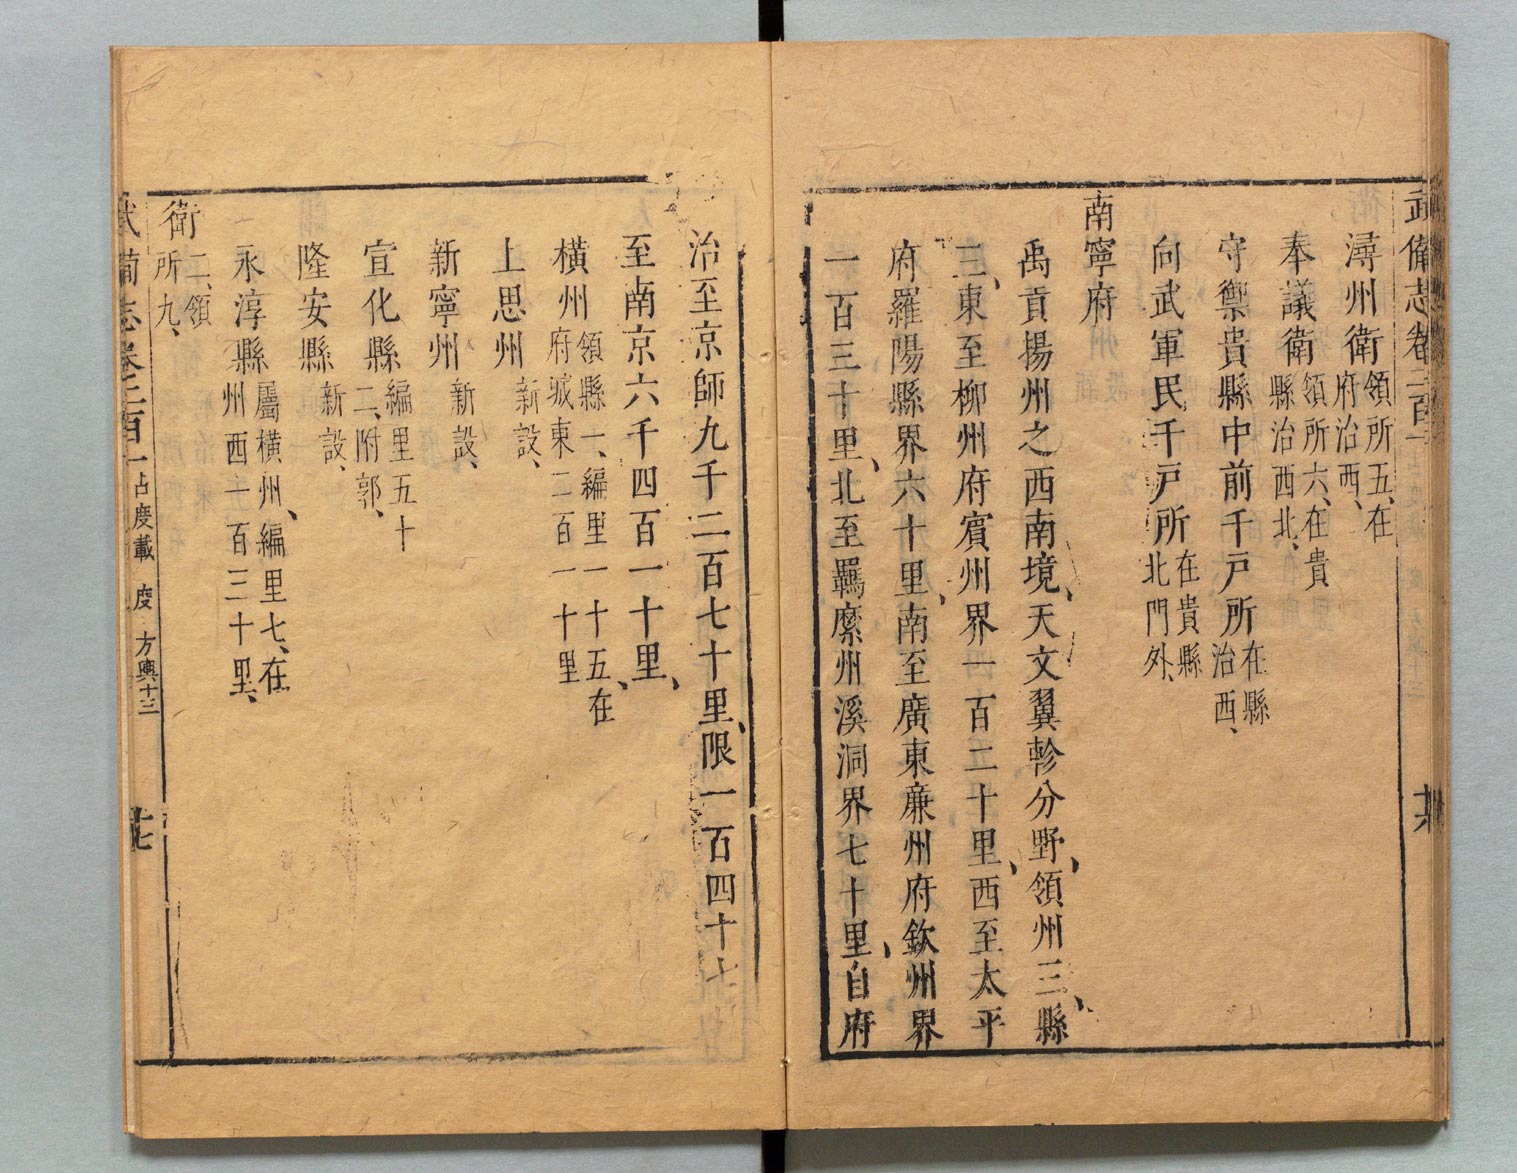 武備志卷二百一
潯州衛領所五、在府治西、
奉議衛領所六、在貴縣治西北、
守禦貴縣中前千戸所在縣治西、
向武軍民千戸所在貴縣北門外、
南寧府
禹貢揚州之西南境、天文翼軫分野、領州三、縣
三、東至柳州府賓州界一百二十里、西至太平
府羅陽縣界六十里、南至廣東亷州府欽州界
一百三十里、北至羈縻州溪洞界七十里、自府
治至京師九千二百七十里、限一百四十七
至南京六千四百一十里、
橫州領縣一、編里一十五、在府城東二百一十里
上思州新設、
新寧州新設、
宣化縣編里五十二、附郭、
隆安縣新設、
永淳縣屬橫州、編里七、在州西一百三十里、
衛二、領所九、
武備志卷二百一 占度載 度 方輿十三 廿七